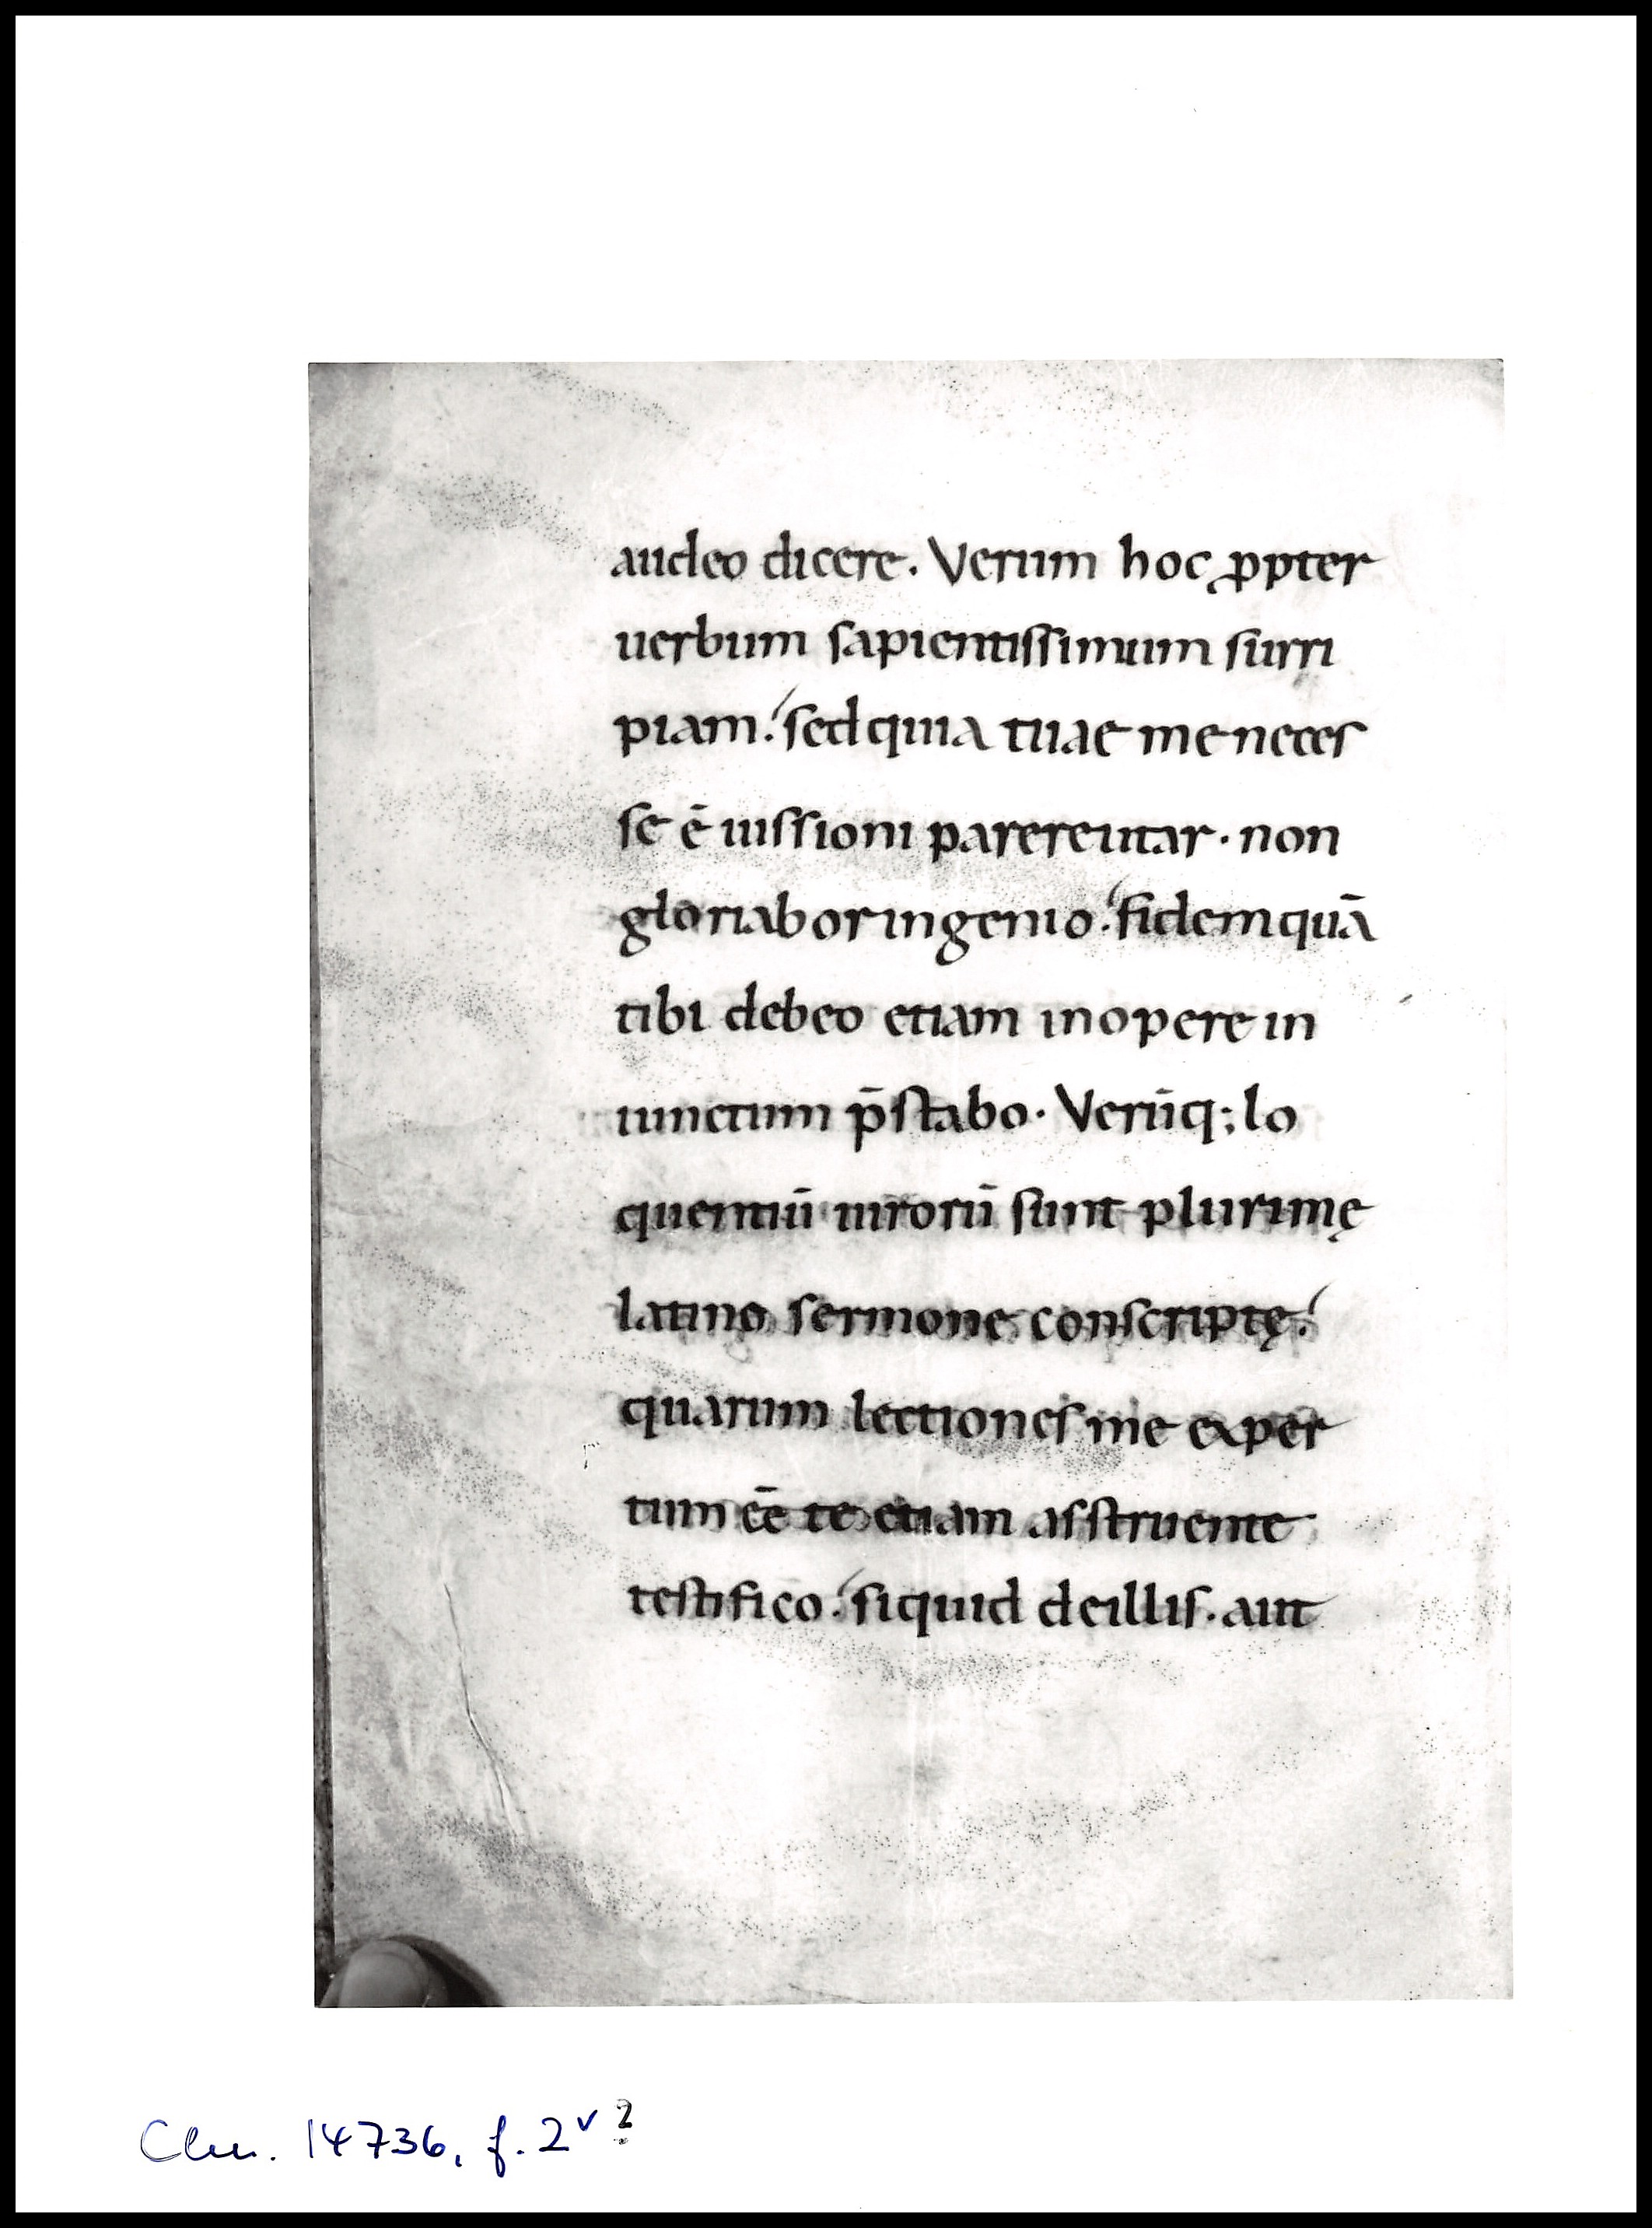 audeo dicere. Verum hoc ꝓpter
uerbum sapientissimum surri
piam. sed quia tuae me neces
se ē iussioni parere utar · non
gloriabor ingenio. fidem quā
tibi debeo etiam in opere in
iunctum p̄stabo · Verūq; lo
quentiū uirorū sunt plurimę
latino sermone conscriptę.
quarum lectiones me exper
tum ēē te etiam asstruente
testifico. siquid de illis · aut
Clm. 14736, f. 2v ?